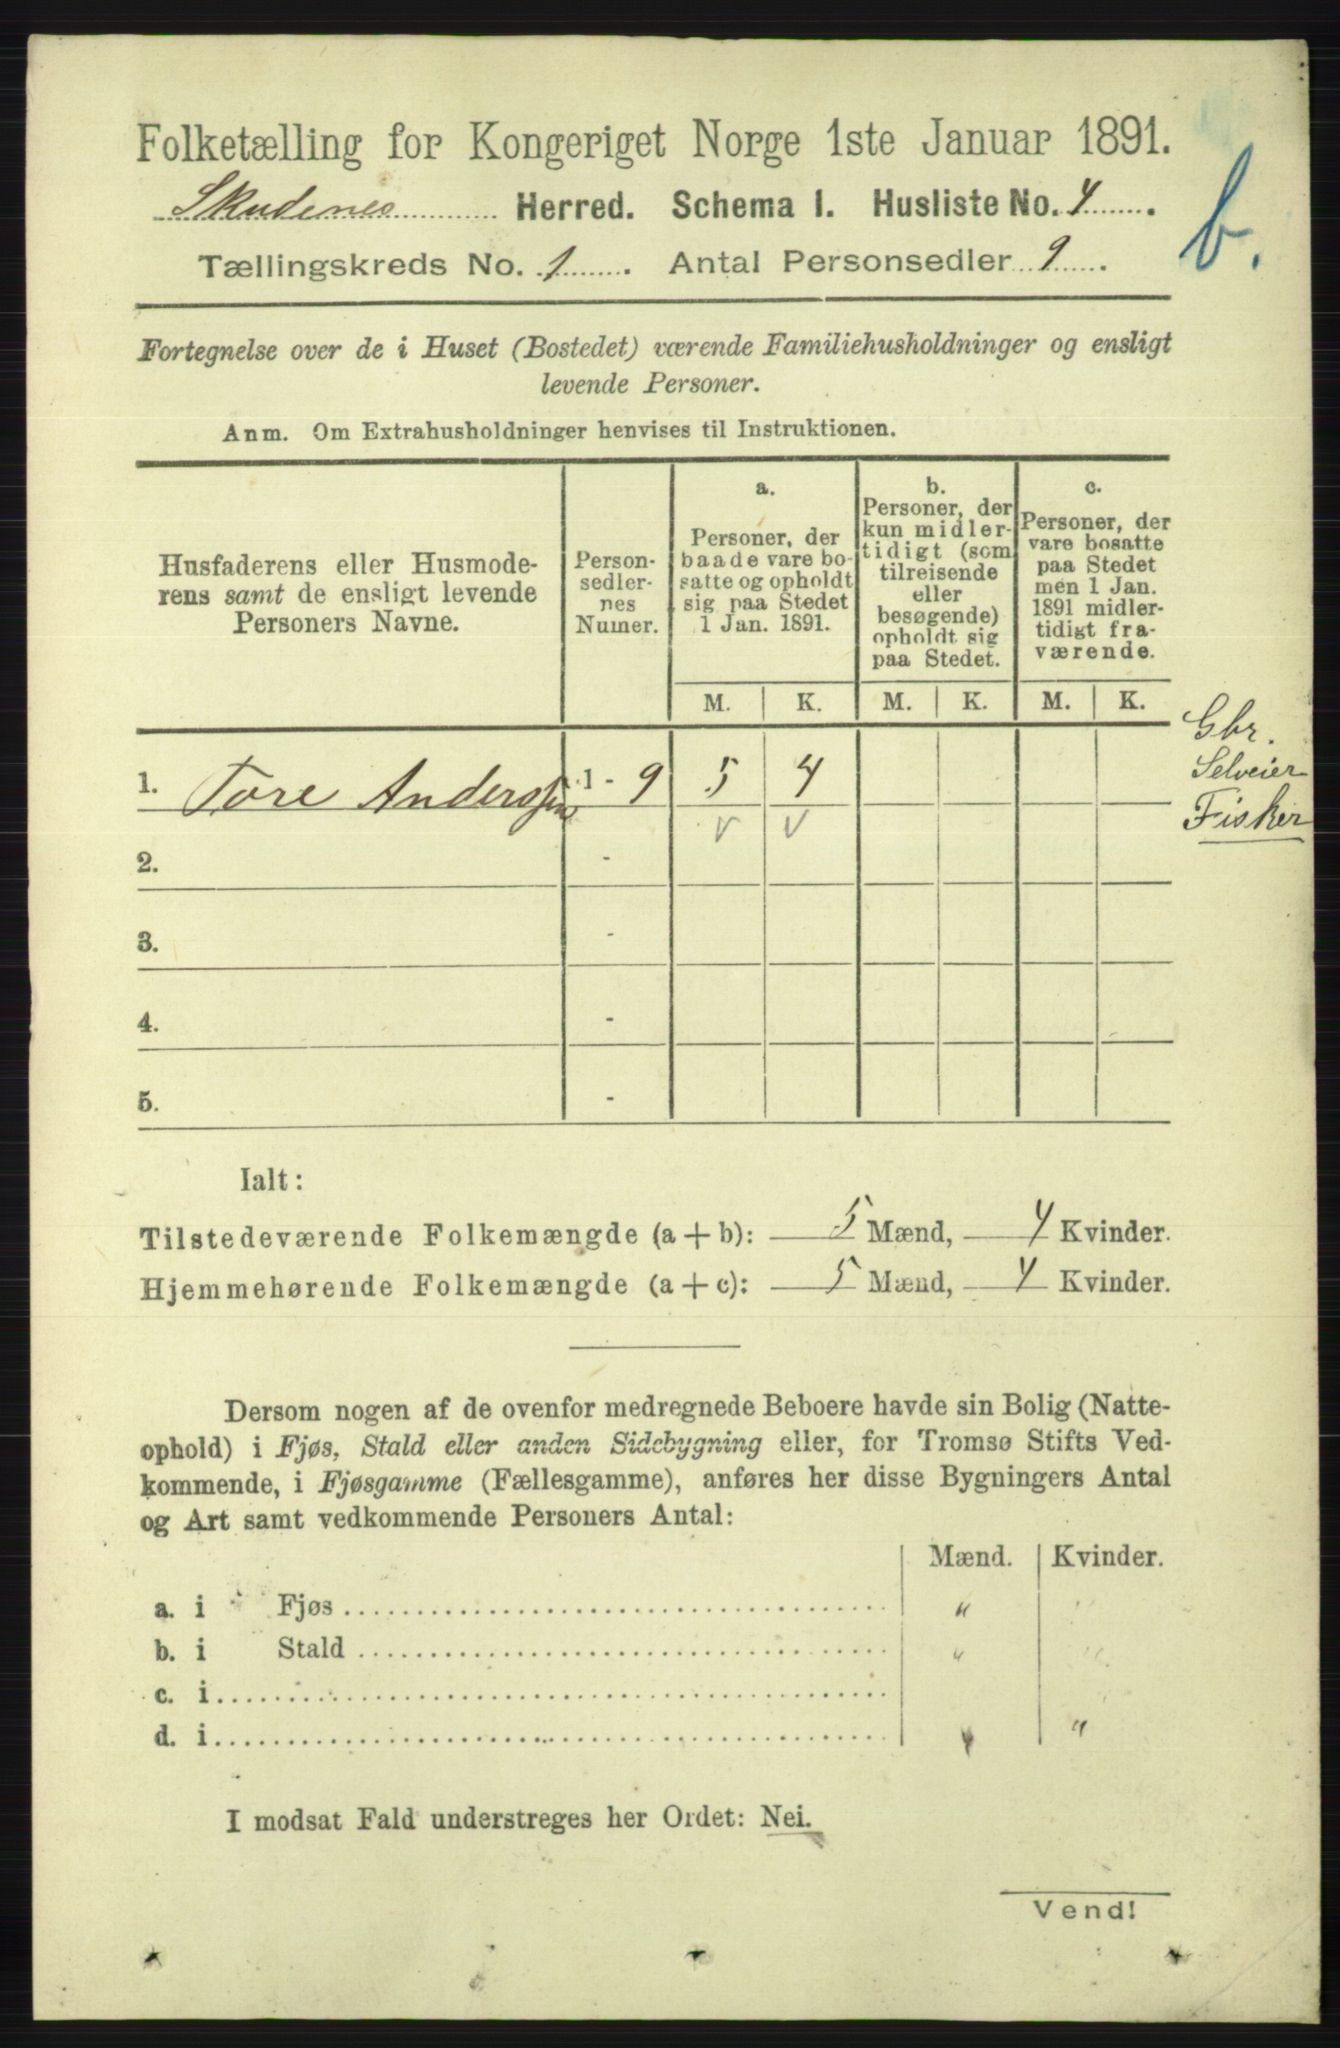 Folketælling for Kongeriget Norge 1ste Januar 1891.
Skudenes Herred. Schema 1. Husliste No. 4.
b.
Tællingskreds No. 1. Antal Personsedler 9.
Fortegnelse over de i Huset (Bostedet) værende Familiehusholdninger og ensligt
levende Personer.
Anm. Om Extrahusholdninger henvises til Instruktionen.
Husfaderens eller Husmode-
rens samt de ensligt levende
Personers Navne.
Person-
sedler-
nes
Numer.
a.
Personer, der
baade vare bo-
satte og opholdt
sig paa Stedet
1 Jan. 1891.
b.
Personer, der
kun midler-
tidigt (som
tilreisende
eller
besøgende)
opholdt sig
paa Stedet.
c.
Personer, der
vare bosatte
paa Stedet
men 1 Jan.
1891 midler-
tidigt fra-
værende.
M. K. M. K. M. K.
Gbr.
Selveier
Fisker
1. Tore Anderssen 1 - 9 5 4
v v
2. -
3. -
4. -
5. -
Ialt:
Tilstedeværende Folkemængde (a + b): 5 Mænd, 4 Kvinder.
Hjemmehørende Folkemængde (a + c): 5 Mænd, 4 Kvinder.
Dersom nogen af de ovenfor medregnede Beboere havde sin Bolig (Natte-
ophold) i Fjøs, Stald eller anden Sidebygning eller, for Tromsø Stifts Ved-
kommende, i Fjøsgamme (Fællesgamme), anføres her disse Bygningers Antal
og Art samt vedkommende Personers Antal:
Mænd. Kvinder.
a. i Fjøs " "
b. i Stald " "
c. i
d. i " "
I modsat Fald understreges her Ordet: Nei.
Vend!